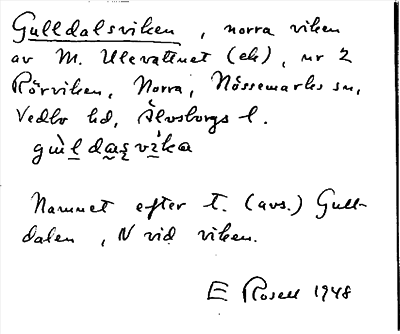 Gulldalsviken, norra viken
av M. Ulevattnet (ek), nr 2
Rörviken, Norra, Nössemarks sn,
Vedbo hd, Älvsborgs l.
gùl̲da̲s̲vi̲ka
Namnet efter t. (avs.) Gull-
dalen, N vid viken.
E Rosell 1948